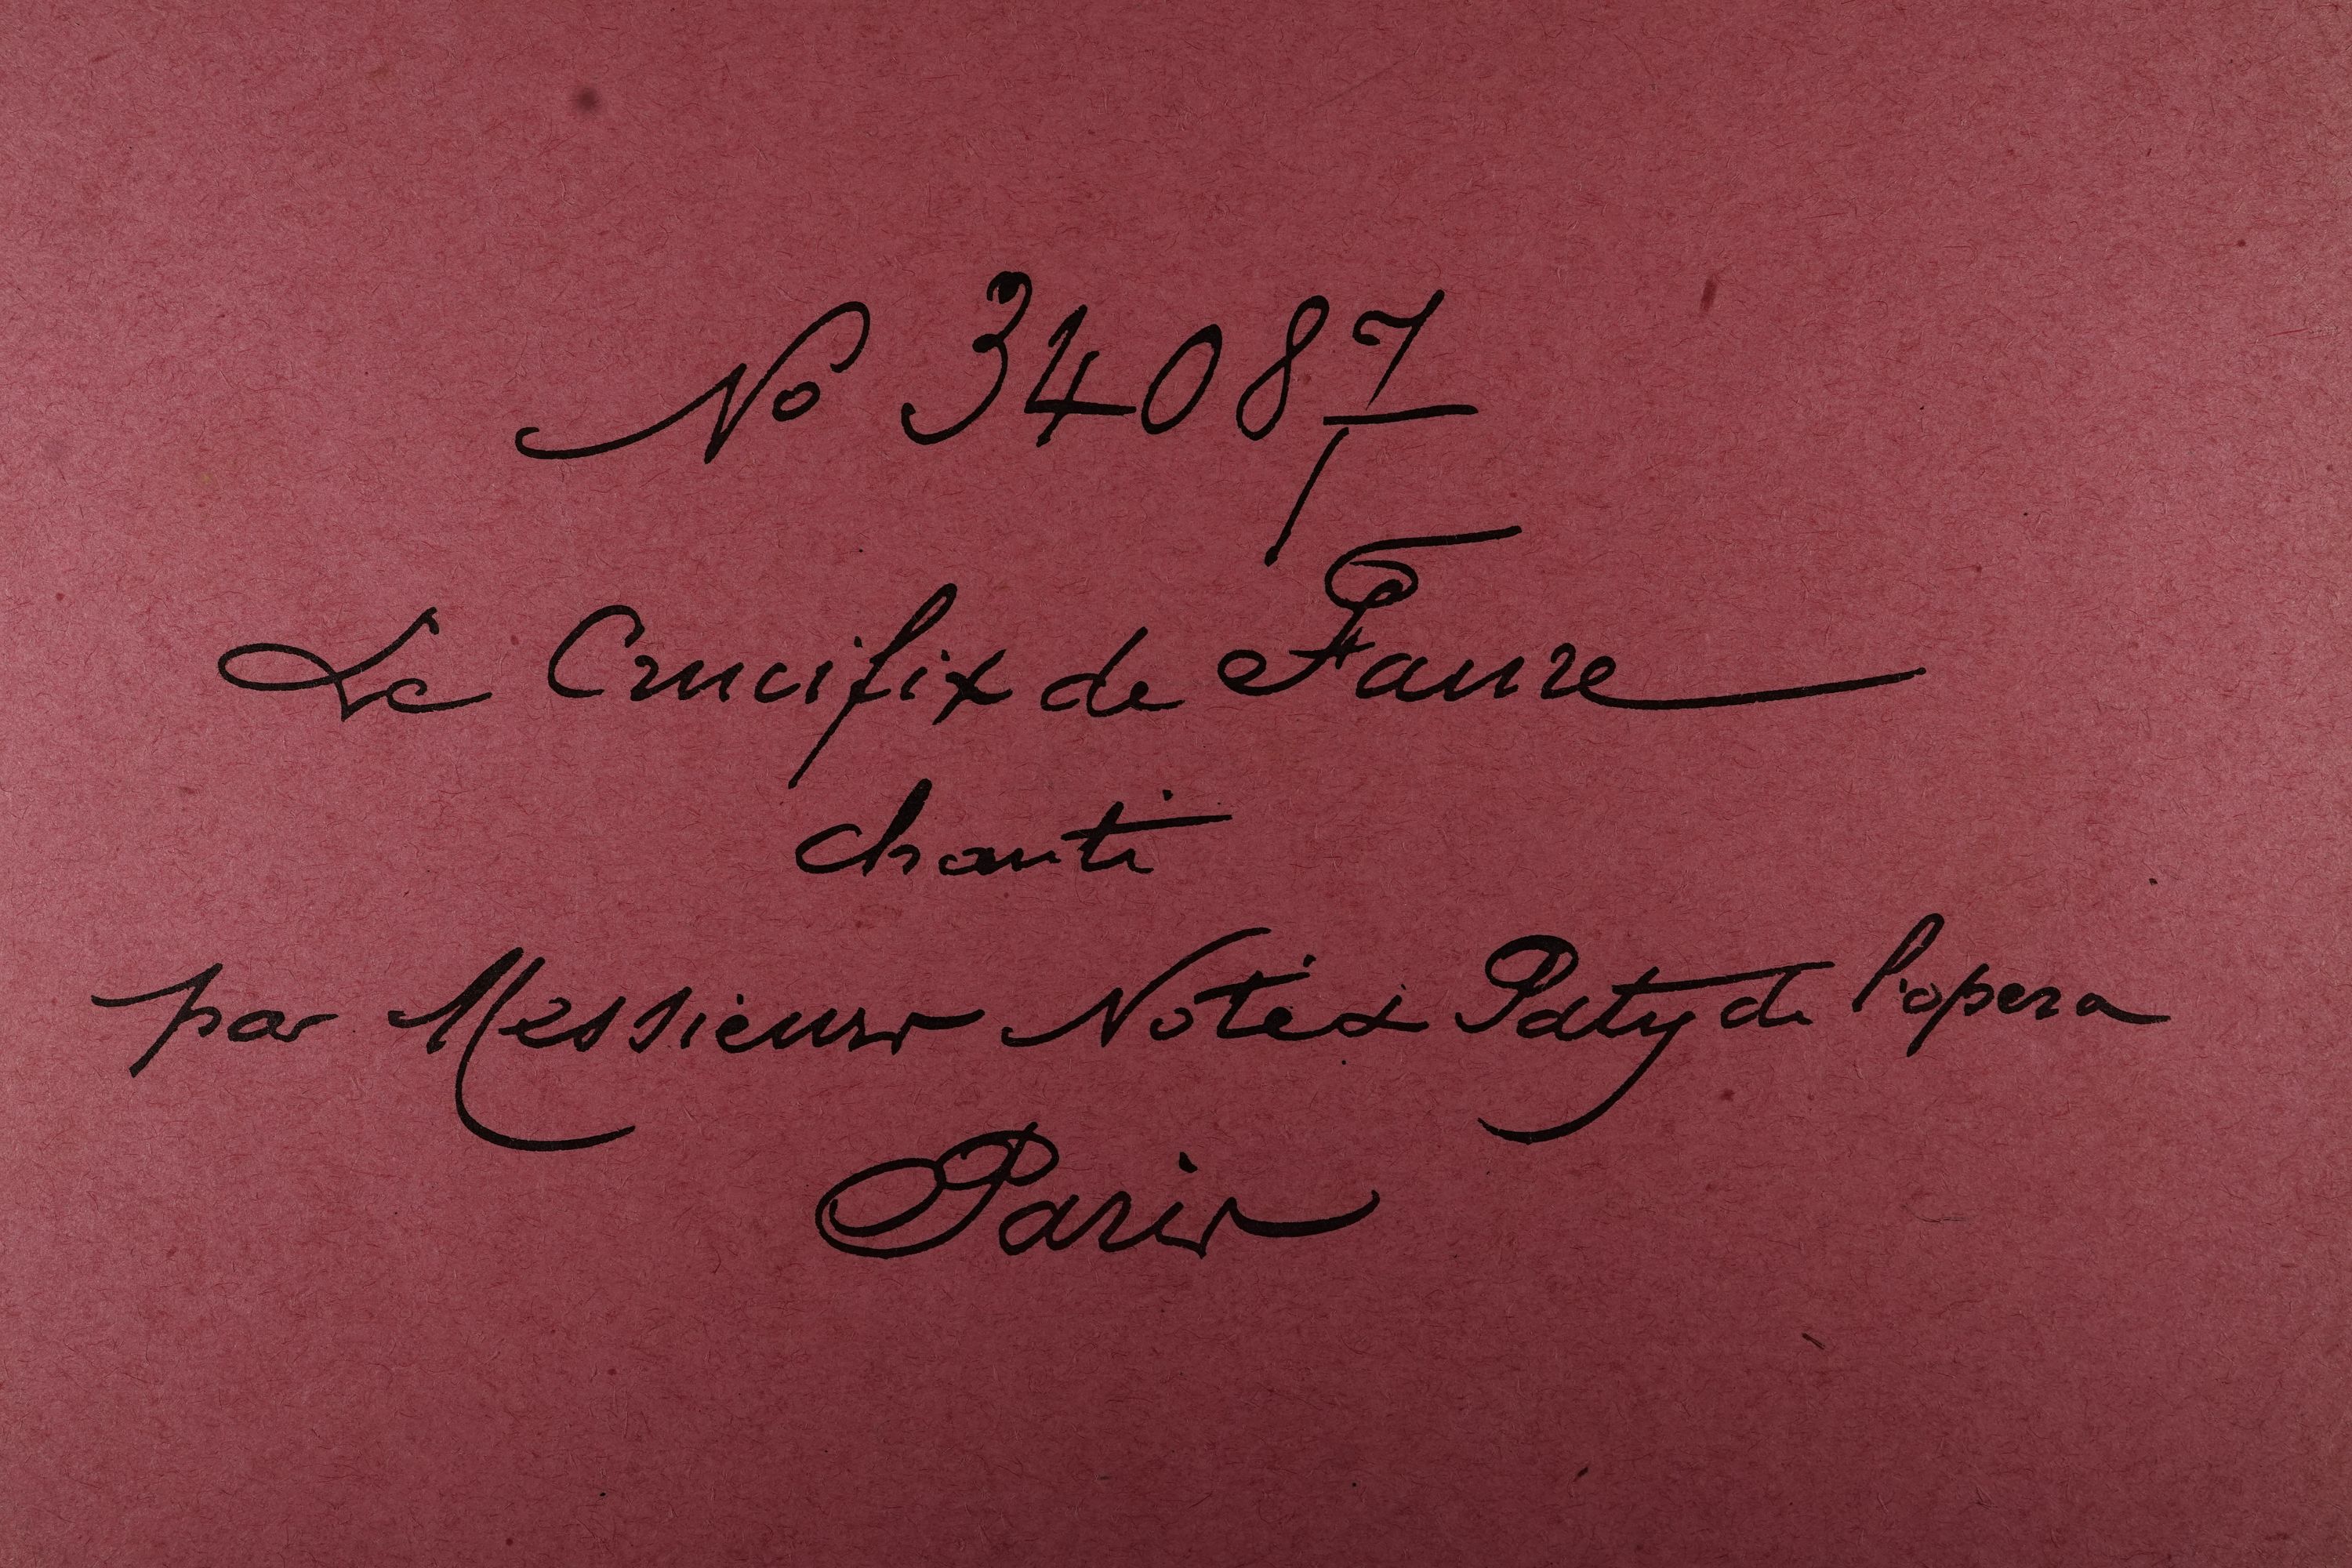 No 34087
Le Crucifix de Faure
chanté
par Messieurs Noté & Paty de l'opera
Paris